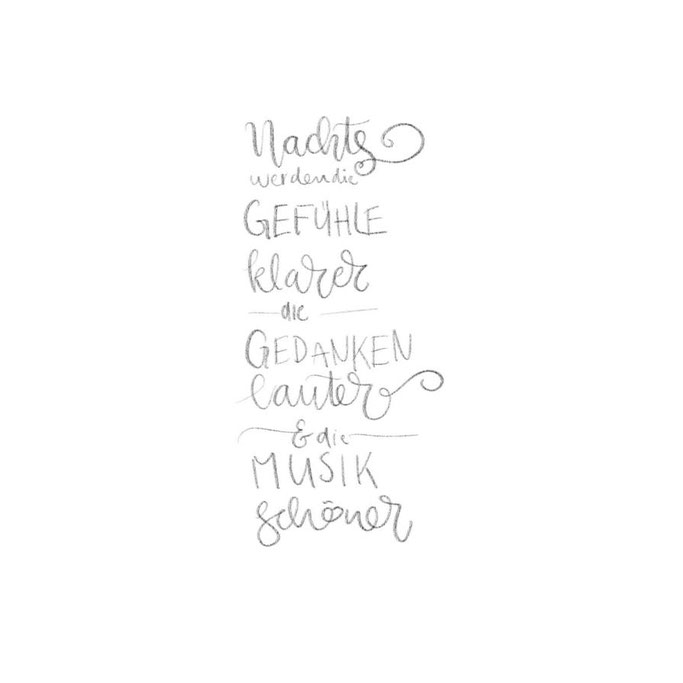 Nachts
werden die
GEFÜHLE
klarer
die
GEDANKEN
lauter
& die
MUSIK
schöner